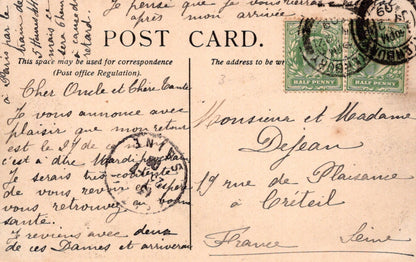 à Paris par le
train de
5 heures
mais ce
sera
retard.
Je pense que je vous
après mon arrivée.
POST CARD.
This space may be used for correspondence
(Post office Regulation).
The address to be
HALF PENNY
HALF PENNY
Cher Oncle et Chère Tante
Je vous annonce avec
plaisir que mon retour
est le 17 de ce
c'est à dire Mardi prochain
Je serais très contente
de vous revoir et espère
vous retrouver en bonne
santé.
Je reviens avec deux
de ces Dames et arriverai
SEINE
Monsieur et Madame
Dejean
19 rue de Plaisance
à Créteil
France Seine